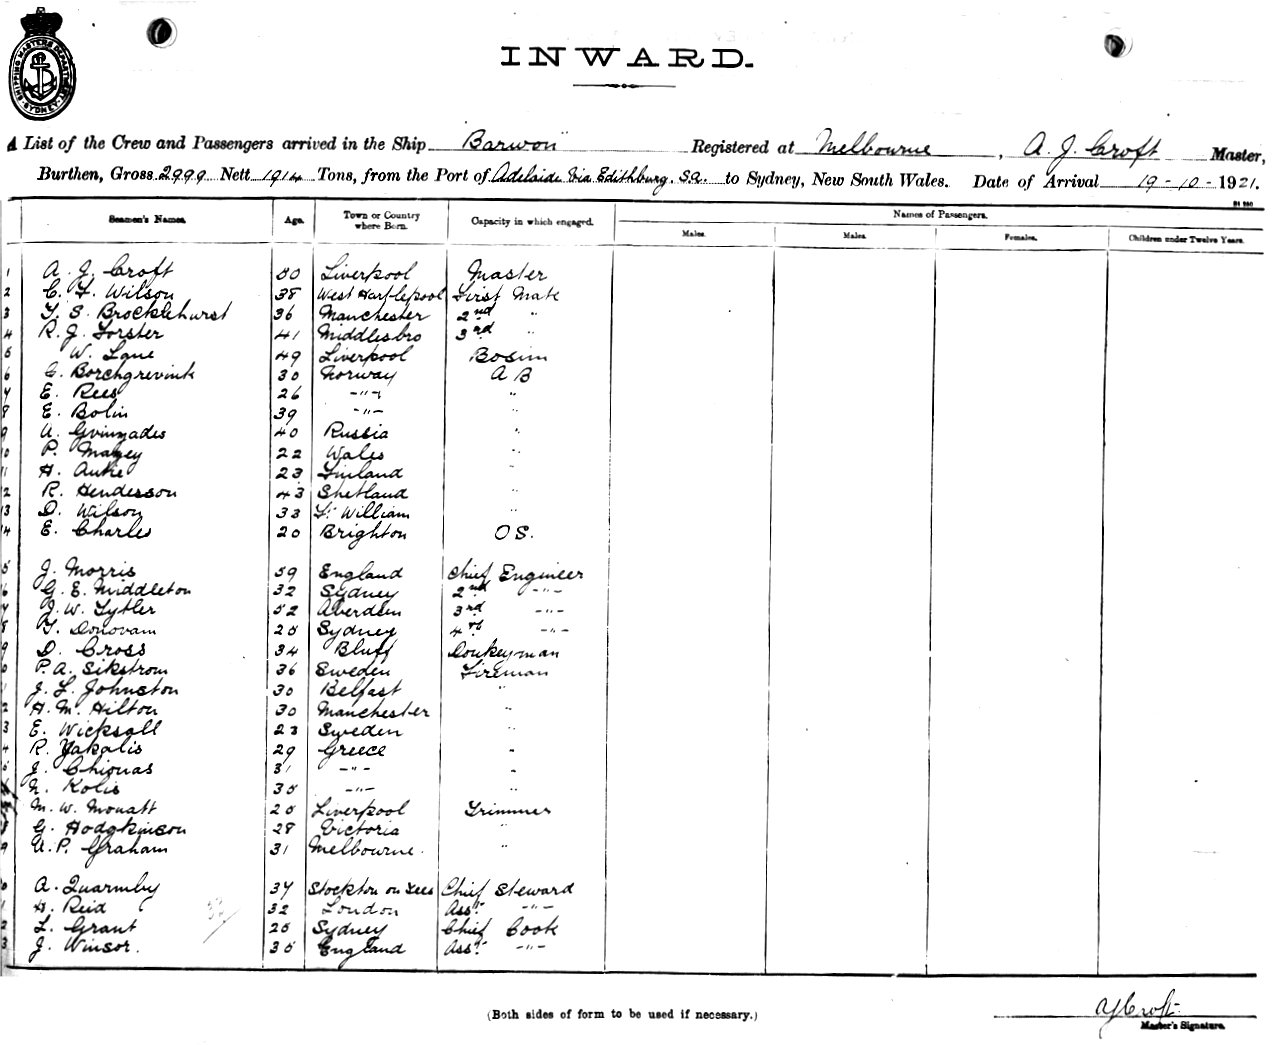 SHIPPING MASTERS DEPARTMENT SYDNEY
INWARD.
A List of the Crew and Passengers arrived in the Ship "Barwon" Registered at Melbourne, A. J. Croft Master,
Burthen, Gross 2999 Nett 1914 Tons, from the Port of Adelaide Via Edithburg. SA. to Sydney, New South Wales. Date of Arrival 19-10-1921.
Seamen's Names. Age. Town or Country where Born. Capacity in which engaged. Names of Passengers.
Males. Males. Females. Children under Twelve Years.
1 A. J. Croft 50 Liverpool Master
2 C. F. Wilson 38 West Hartlepool First Mate
3 T. S. Brocklehurst 36 Manchester 2nd "
4 R. J. Forster 41 Middlesbro 3rd "
5 W. Lane 49 Liverpool Bosun
6 Borchgrevink 30 Norway A B
7 E. Rees 26 -"- "
8 E. Bolin 39 -"- "
9 A. 40 Russia "
10 P. 22 Wales "
11 H. 23 Finland "
12 R. Henderson 43 Shetland "
13 D. Wilson 33 Ft William "
14 E. Charles 20 Brighton OS.
5 J. Morris 59 England Chief Engineer
6 G. E. Middleton 32 Sydney 2nd -"-
7 J. W. Tytler 52 Aberdeen 3rd -"-
8 T. Donovan 25 Sydney 4th -"-
9 D. Cross 34 Bluff Donkeyman
0 P. A. Sikstrom 36 Sweden Fireman
1 J. L. Johnston 30 Belfast "
2 H. M. Hilton 30 Manchester "
3 E. Wicksall 23 Sweden "
4 R. Yakalis 29 Greece "
5 J. Chionas 31 -"- "
N. Kolis 35 -"- "
M. W. Mouatt 25 Liverpool Trimmer
8 G. Hodgkinson 28 Victoria "
9 A. P. Graham 31 Melbourne "
0 A. Quarmby 37 Stockton on Tees Chief Steward
1 H. Reid 32 London Asst -"-
2 L. Grant 25 Sydney Chief Cook
3 J. Winsor. 35 England Asst -"-
(Both sides of form to be used if necessary.)
AJCroft
Master's Signature.